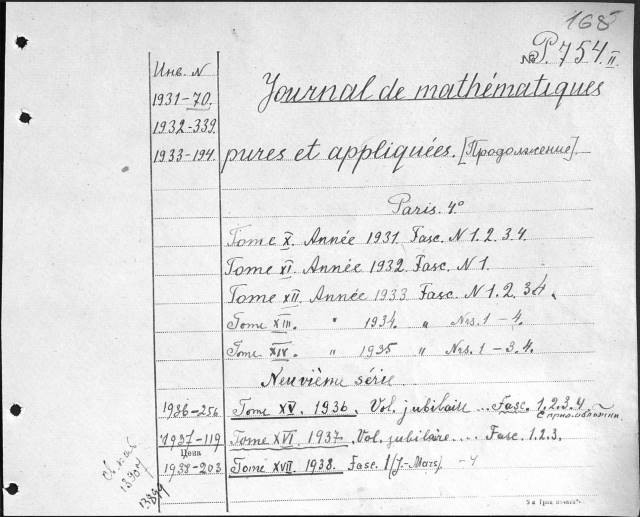 168
№ P.754.II
Инв. N
1931-70.
1932-339.
1933-194.
Journal de mathématiques
pures et appliquées. [Продолжение].
Paris. 4°
Tome X. Année 1931. Fasc. N 1. 2. 3. 4.
Tome XI. Année 1932. Fasc. N 1.
Tome XII. Année 1933. Fasc. N 1. 2. 3 4.
Tome XIII. " 1934. " Nrs. 1 - 4.
Tome XIV. " 1935 " Nrs. 1 - 3. 4.
Neuvième série.
1936-256 Tome XV. 1936. Vol. jubilaire ... Fasc. 1. 2. 3. 4.
1937-119 Tome XVI. 1937. Vol. jubilaire .... Fasc. 1. 2. 3.
Цена
1938-203 Tome XVII. 1938. Fasc. 1 (J.-Mars) - 4
13899